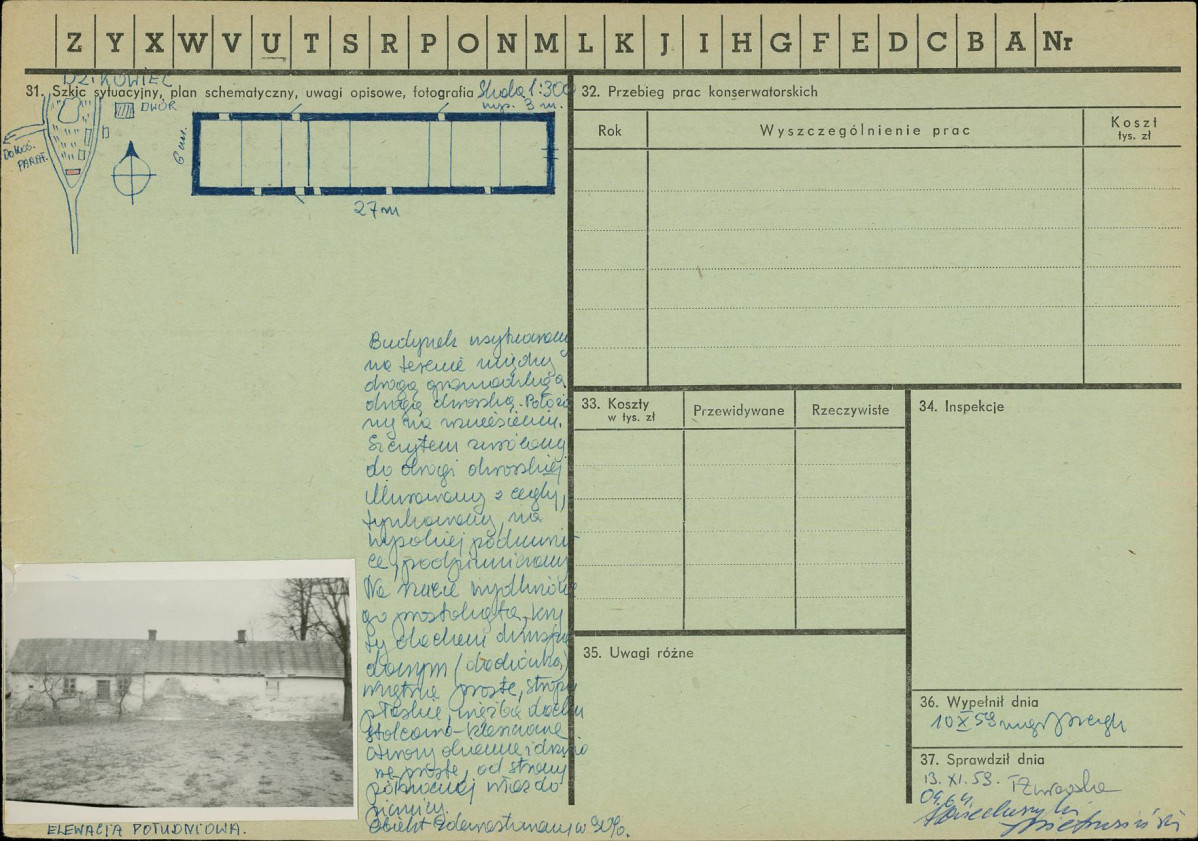 Z Y X W V U T S R P O N M L K J I H G F E D C B A Nr
DZIKOWIEC
31. Szkic sytuacyjny, plan schematyczny, uwagi opisowe, fotografia Skala 1:300
wys. 3 m.
DWÓR
DO KOŚ.
PARAF.
6 m.
27 m
Budynek usytuowany
na terenie między
drogą gromadzką a
drogą dworską. Położo
ny na wzniesieniu.
Szczytem zwrócony
do drogi dworskiej
Murowany z cegły,
tynkowany, na
wysokiej podmurów
ce, podpiwniczony
Na rzucie wydłużone
go prostokąta, kry
ty dachem dwuspa
dowym (dachówka)
wnętrza proste, stropy
płaskie, więźba dachu
stolcowo-kleszczowa
otwory okienne i drzwio
we proste, od strony
północnej właz do
piwnicy.
Obiekt zdewastowany w 90%.
ELEWACJA POŁUDNIOWA.
32. Przebieg prac konserwatorskich
Rok
Wyszczególnienie prac
Koszt
tys. zł
33. Koszty
w tys. zł
Przewidywane
Rzeczywiste
34. Inspekcje
35. Uwagi różne
36. Wypełnił dnia
10 X 59 mgr
37. Sprawdził dnia
13. XI. 59.